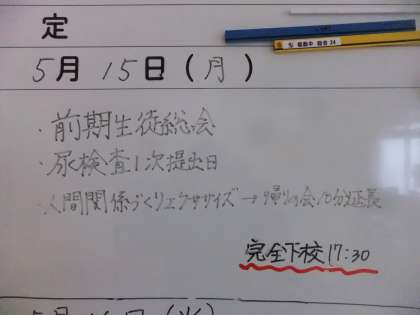 定
5月15日(月)
・前期生徒総会
・尿検査1次提出日
・人間関係づくりエクササイズ→帰りの会10分延長
完全下校17:30